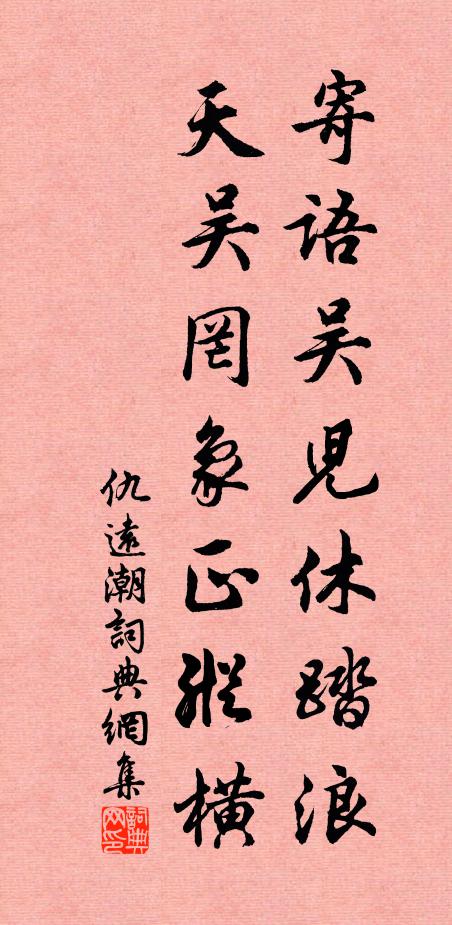 寄語吳兒休踏浪
天吳罔象正縱橫
仇遠潮詞典網集
詞典网印